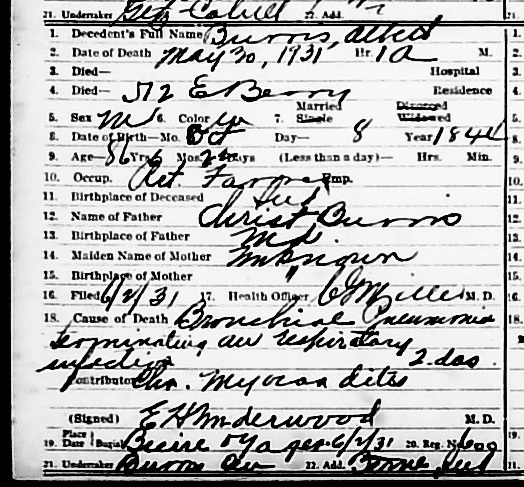 21. Undertaker Geo Cahill 22. Add.
1. Decedent's Full Name Burris, Albert
2. Date of Death May 30, 1931 Hr. 1 A M.
3. Died— Hospital
4. Died— 512 E Berry Residence
5. Sex M 6. Color W 7. Married Single Divorced Widowed
8. Date of Birth—Mo. Oct Day— 8 Year 1844
9. Age— 86 Yrs. Mos. 22 Days (Less than a day)— Hrs. Min.
10. Occup. Ret. Farmer Emp.
11. Birthplace of Deceased Ind
12. Name of Father Christ Burris
13. Birthplace of Father Md
14. Maiden Name of Mother Unknown
15. Birthplace of Mother "
16. Filed 6/2/31 17. Health Officer M. D.
18. Cause of Death Bronchial Pneumonia
terminating an respiratory
infection 2 das.
Contributory Chr. Myocarditis
(Signed) E H Underwood M. D.
19. Place Date Burial 6/2/31 20. Reg. No. 600
21. Undertaker Burris 22. Add. Ind